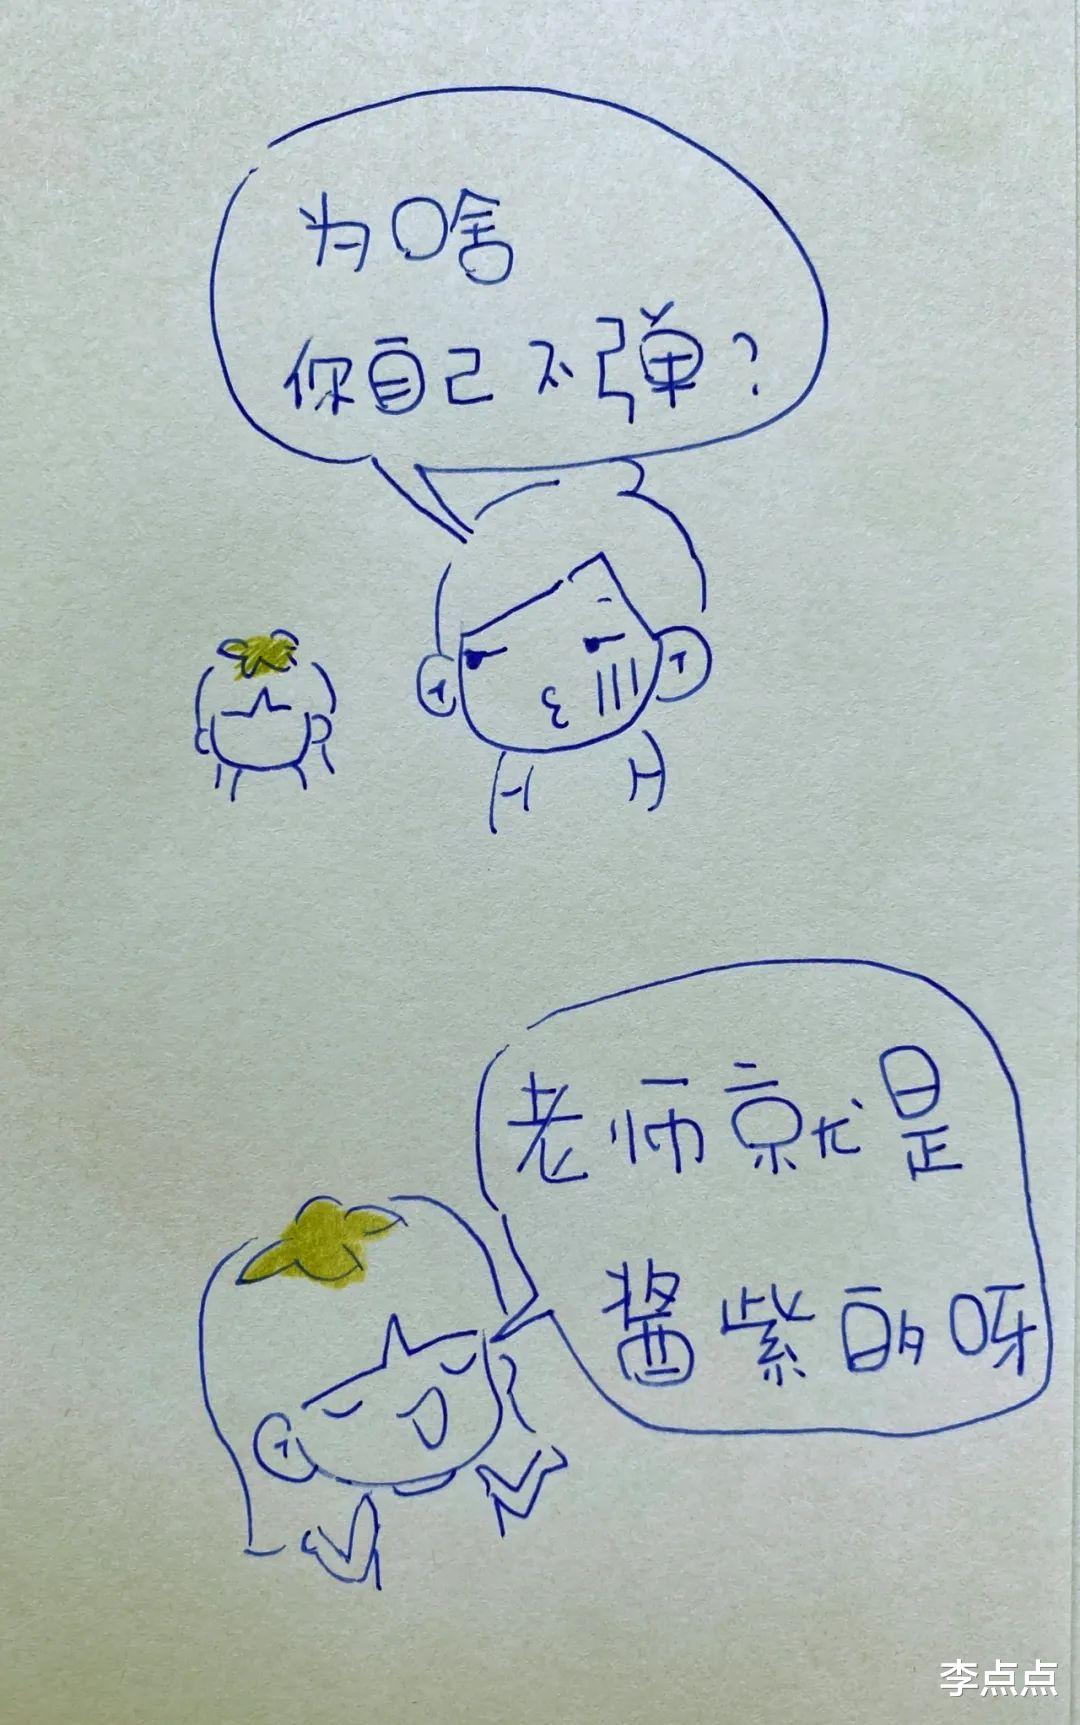 为啥
你自己不弹?
老师就是
酱紫的呀
李点点